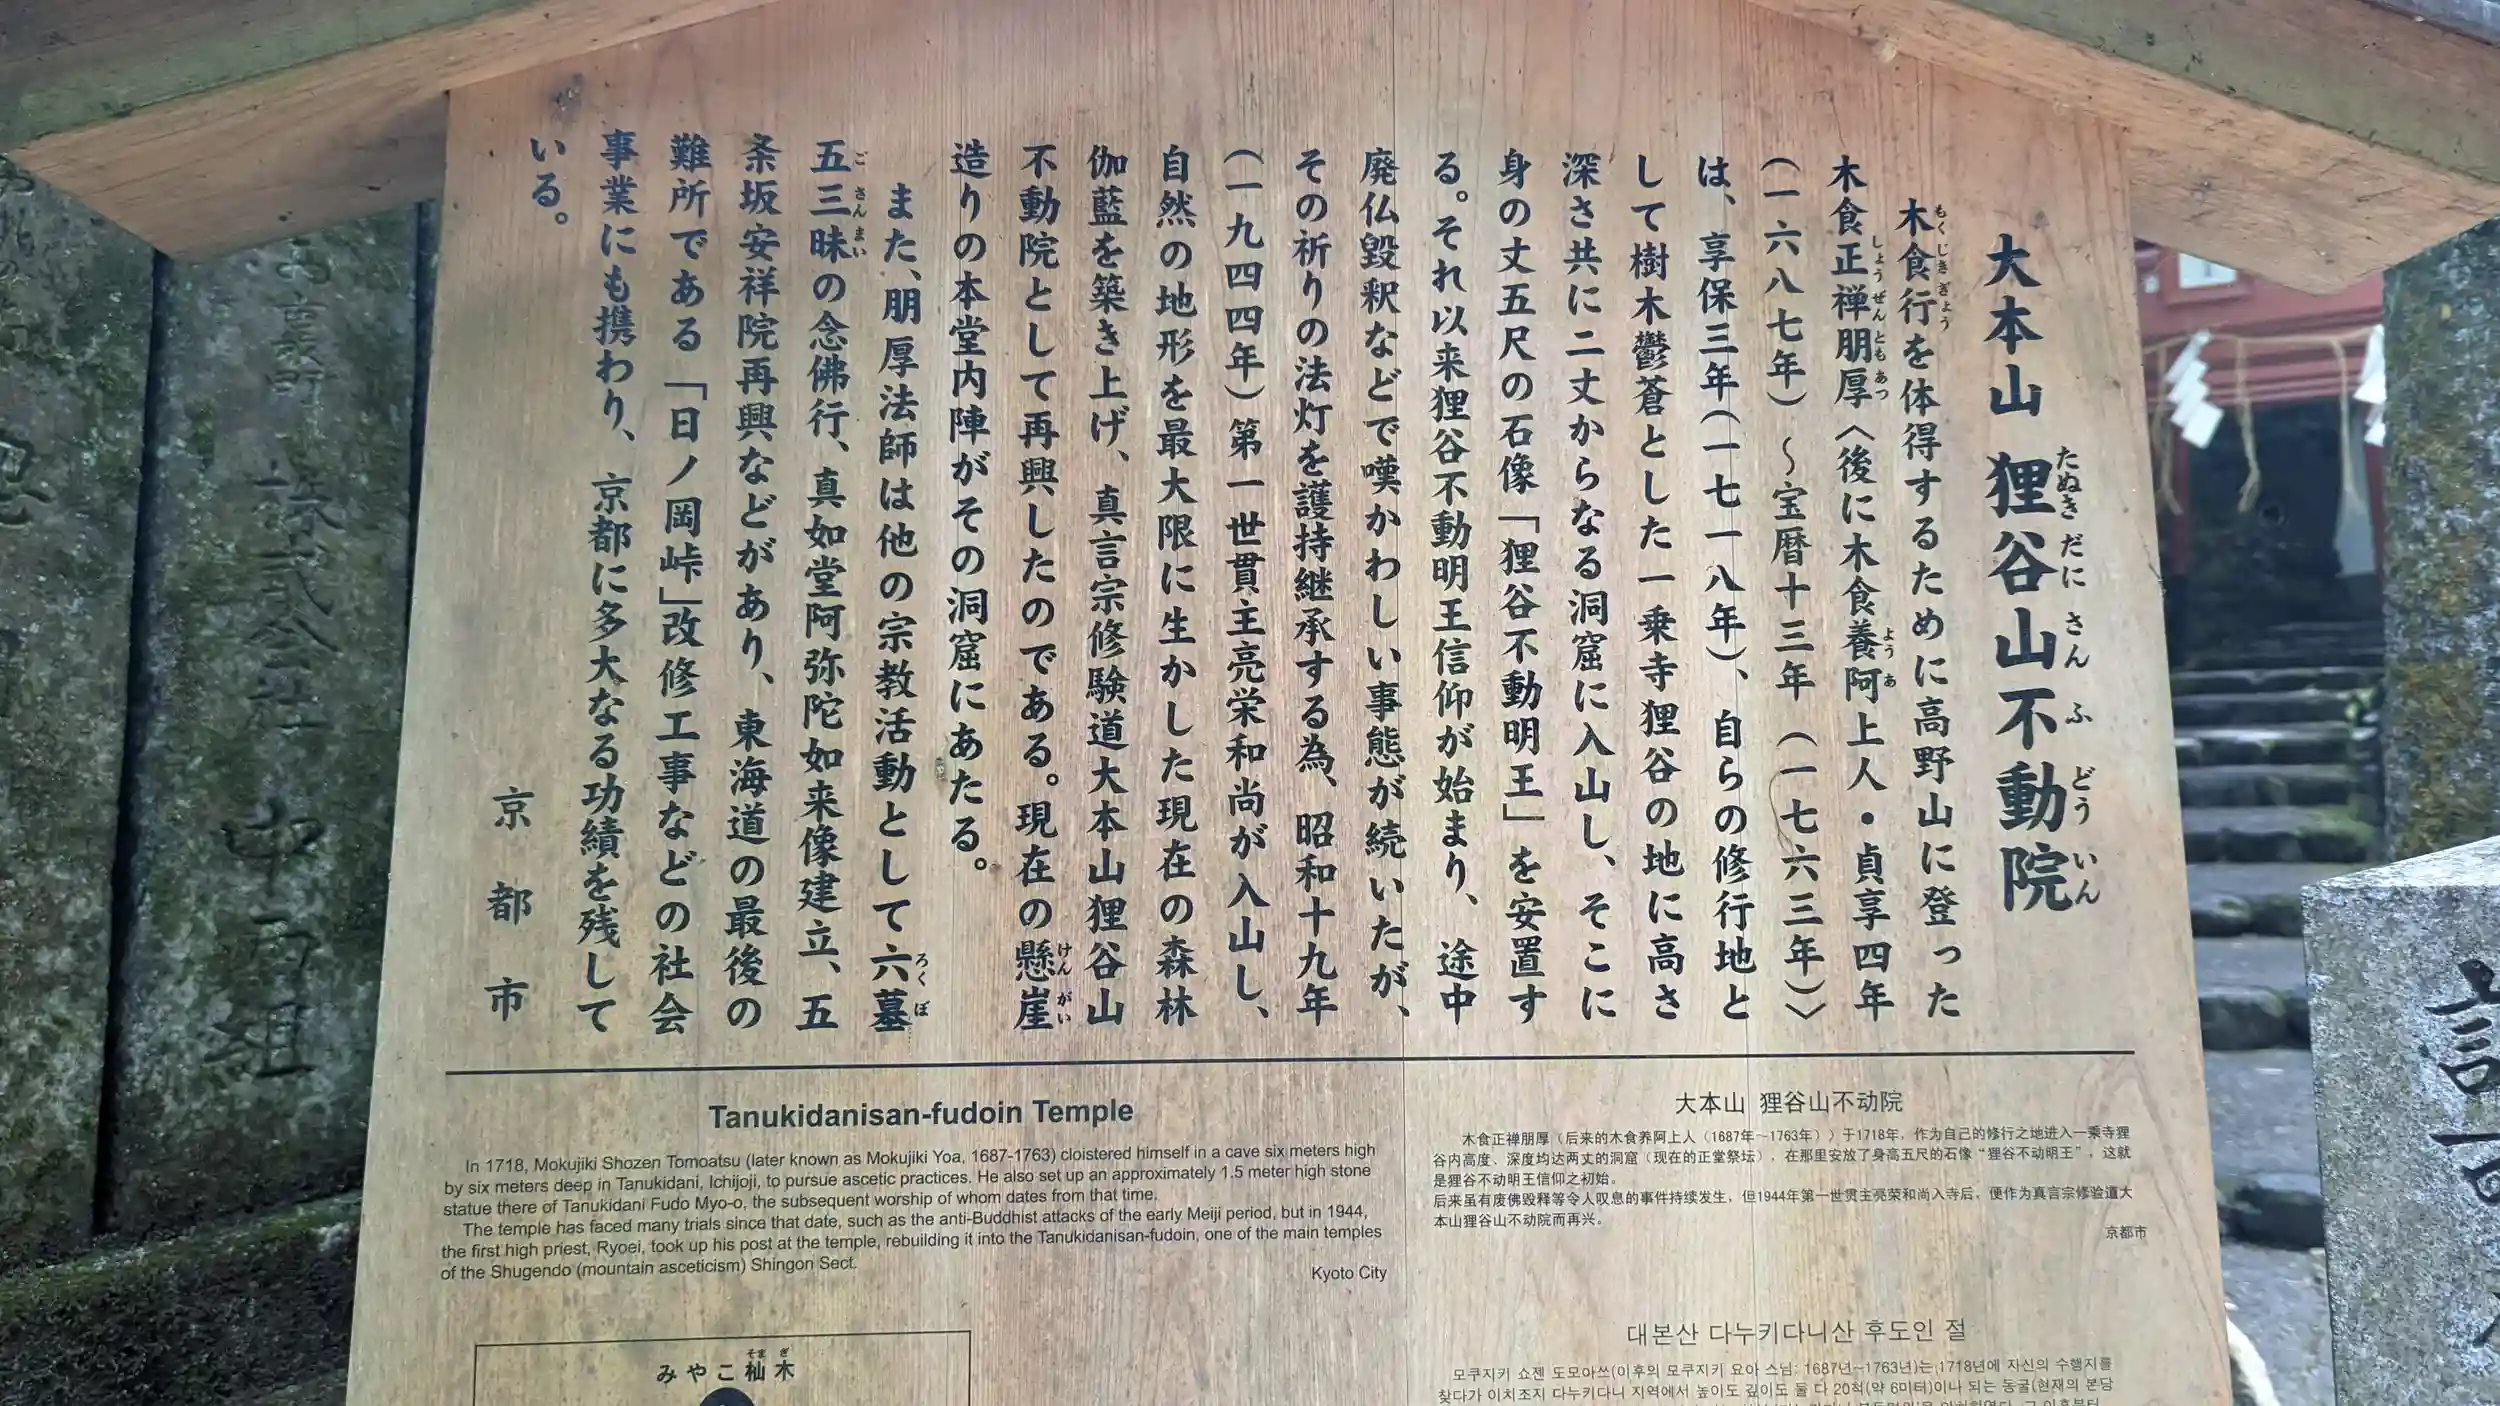 大本山 狸谷山不動院
木食行を体得するために高野山に登った
木食正禅朋厚〈後に木食養阿上人・貞享四年
(一六八七年)～宝暦十三年(一七六三年)〉
は、享保三年(一七一八年)、自らの修行地と
して樹木鬱蒼とした一乗寺狸谷の地に高さ
深さ共に二丈からなる洞窟に入山し、そこに
身の丈五尺の石像「狸谷不動明王」を安置す
る。それ以来狸谷不動明王信仰が始まり、途中
廃仏毀釈などで嘆かわしい事態が続いたが、
その祈りの法灯を護持継承する為、昭和十九年
(一九四四年)第一世貫主亮栄和尚が入山し、
自然の地形を最大限に生かした現在の森林
伽藍を築き上げ、真言宗修験道大本山狸谷山
不動院として再興したのである。現在の懸崖
造りの本堂内陣がその洞窟にあたる。
また、朋厚法師は他の宗教活動として六墓
五三昧の念佛行、真如堂阿弥陀如来像建立、五
条坂安祥院再興などがあり、東海道の最後の
難所である「日ノ岡峠」改修工事などの社会
事業にも携わり、京都に多大なる功績を残して
いる。
京都市
Tanukidanisan-fudoin Temple
In 1718, Mokujiki Shozen Tomoatsu (later known as Mokujiki Yoa, 1687-1763) cloistered himself in a cave six meters high
by six meters deep in Tanukidani, Ichijoji, to pursue ascetic practices. He also set up an approximately 1.5 meter high stone
statue there of Tanukidani Fudo Myo-o, the subsequent worship of whom dates from that time.
The temple has faced many trials since that date, such as the anti-Buddhist attacks of the early Meiji period, but in 1944,
the first high priest, Ryoei, took up his post at the temple, rebuilding it into the Tanukidanisan-fudoin, one of the main temples
of the Shugendo (mountain asceticism) Shingon Sect.
Kyoto City
大本山 狸谷山不动院
木食正禅朋厚（后来的木食养阿上人（1687年～1763年））于1718年，作为自己的修行之地进入一乘寺狸
谷内高度、深度均达两丈的洞窟（现在的正堂祭坛），在那里安放了身高五尺的石像“狸谷不动明王”，这就
是狸谷不动明王信仰之初始。
后来虽有废佛毁释等令人叹息的事件持续发生，但1944年第一世贯主亮荣和尚入寺后，便作为真言宗修验道大
本山狸谷山不动院而再兴。
京都市
대본산 다누키다니산 후도인 절
모쿠지키 쇼젠 도모아쓰(이후의 모쿠지키 요아 스님: 1687년~1763년)는 1718년에 자신의 수행지를
찾다가 이치조지 다누키다니 지역에서 높이도 깊이도 둘 다 20척(약 6미터)이나 되는 동굴(현재의 본당
みやこ杣木
株式会社 中村組